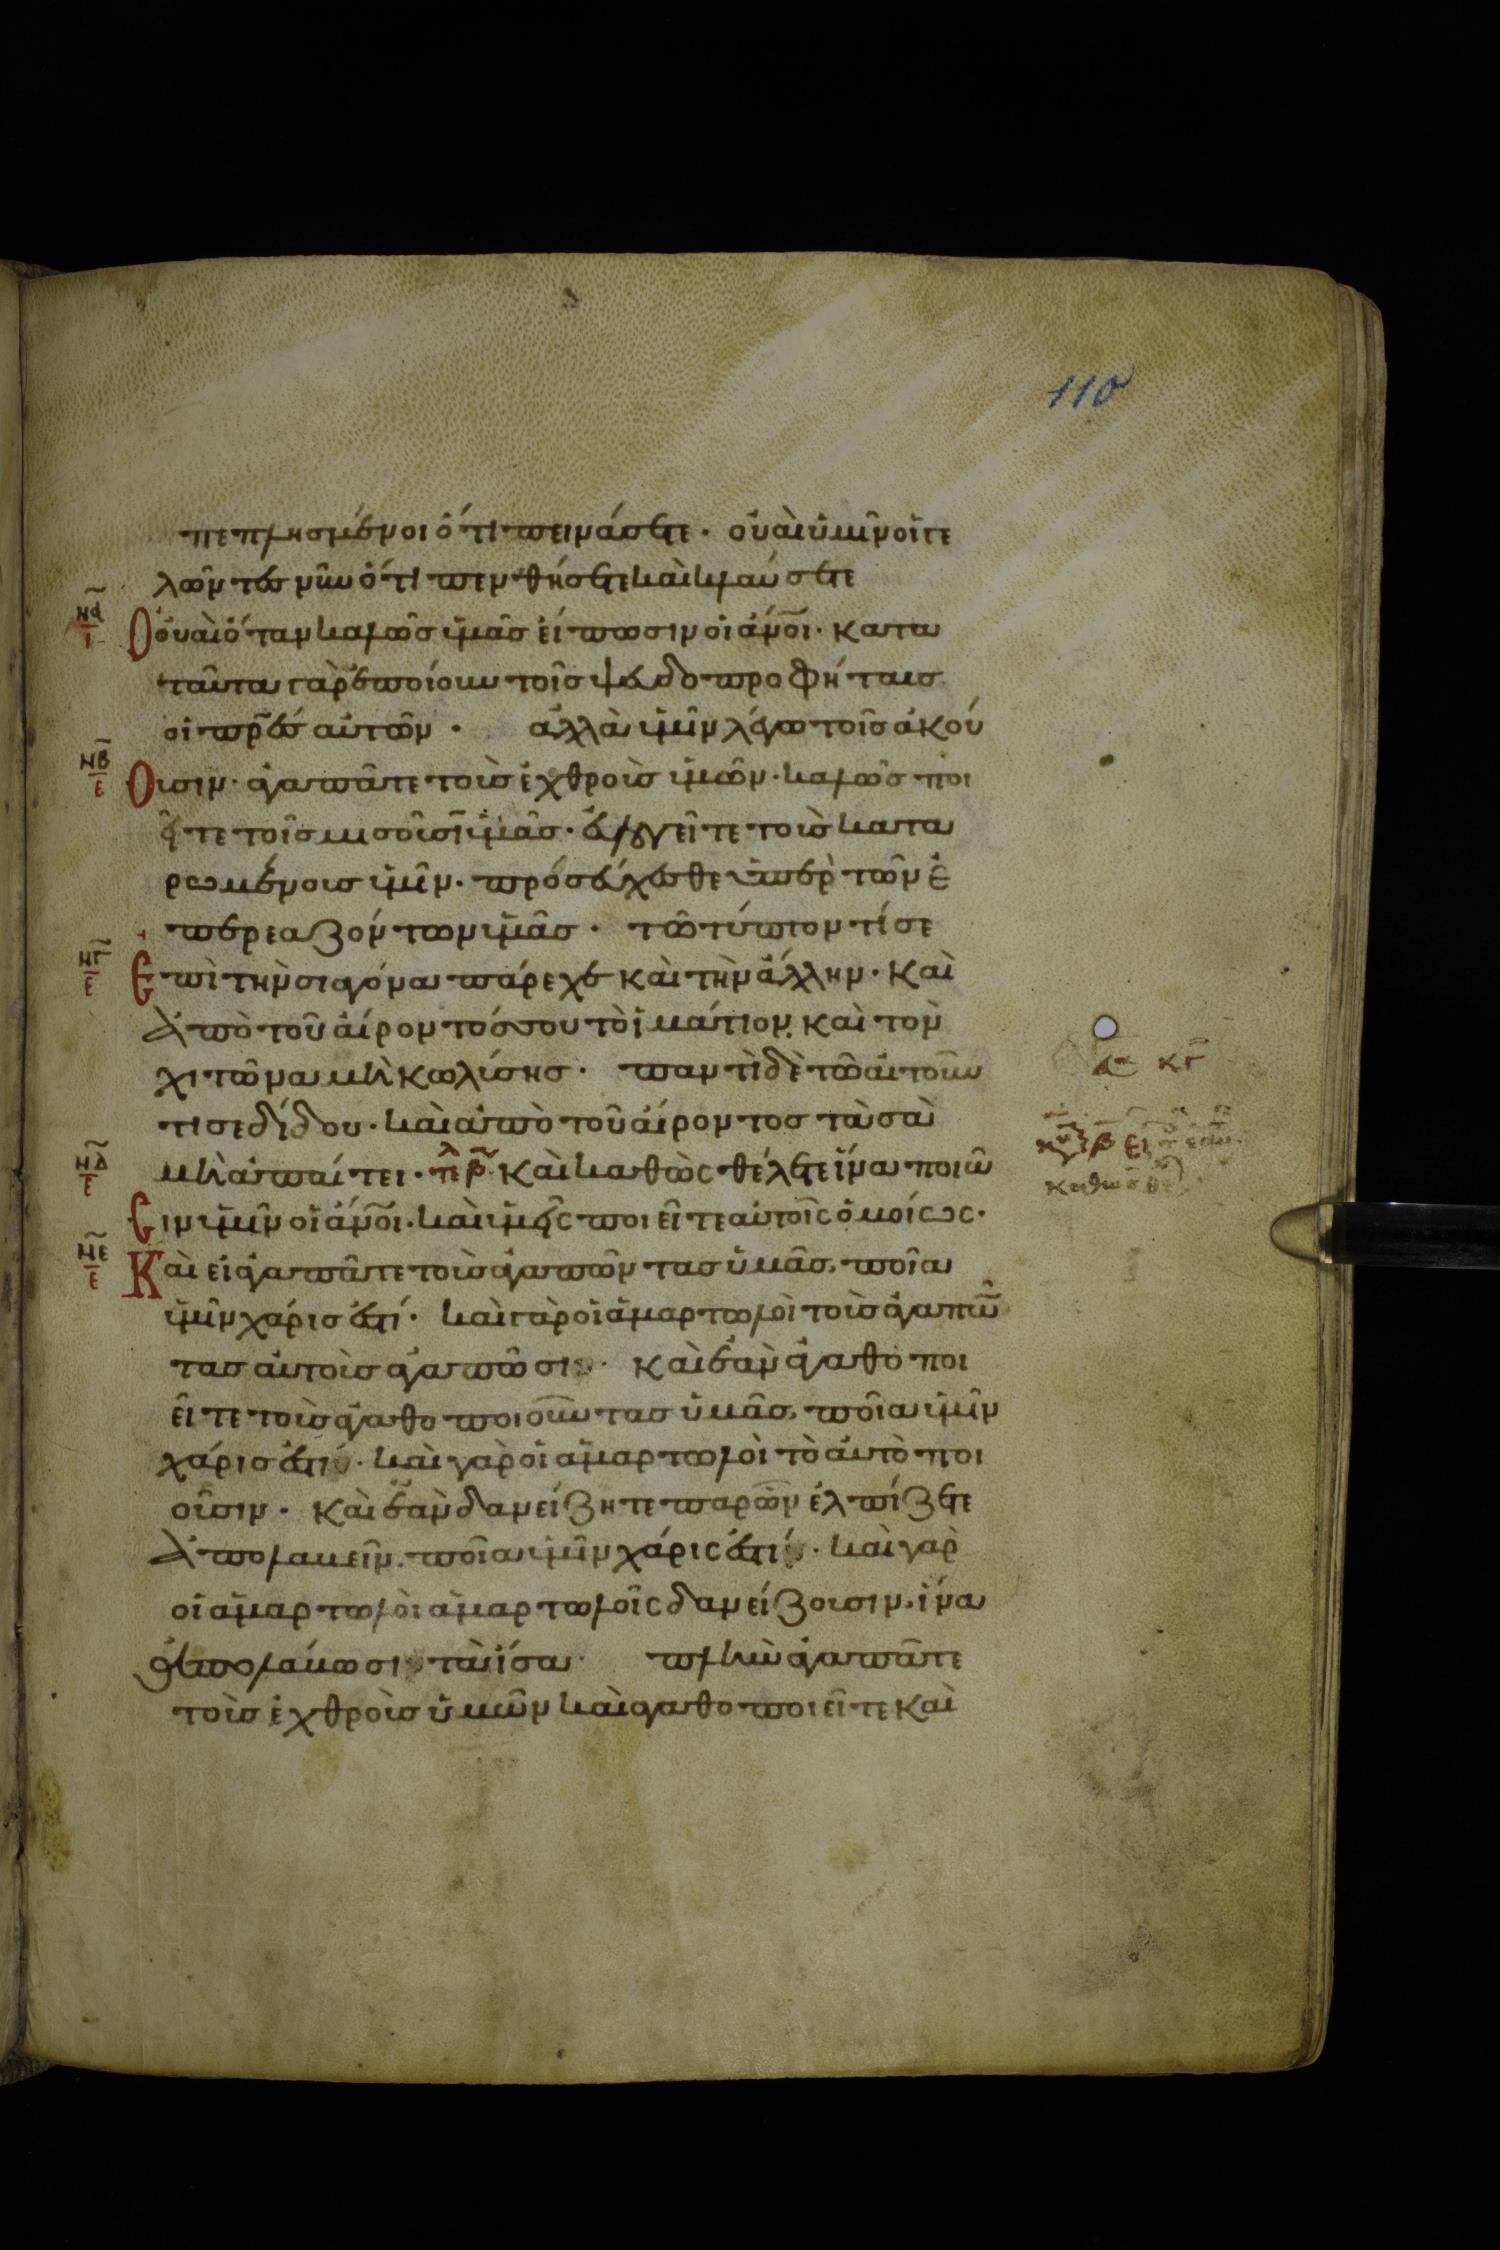 110
πεπλησμένοι ὅτι πεινάσετε · οὐαὶ ὑμῖν οἱ γε
λῶντες νῦν ὅτι πενθήσετε καὶ κλαύσετε
να ι
Οὐαὶ ὅταν καλῶς ὑμᾶς εἴπωσιν οἱ ἄνοι · κατα
ταῦτα γὰρ ἐποίουν τοῖς ψευδοπροφήταις
οἱ πρες αὐτῶν · ἀλλὰ ὑμῖν λέγω τοῖς ἀκού
μβ ε
Ουσιν · ἀγαπᾶτε τοὺς ἐχθροὺς ὑμῶν · καλῶς ποι
εῖτε τοῖς μισοῦσιν ὑμᾶς · εὐλογεῖτε τοὺς κατα
ρωμένους ὑμῖν · προσεύχεσθε ὑπὲρ τῶν ἐ
πηρεαζόντων ὑμᾶς · τῶ τύπτοντί σε
μγ ε
Επὶ τὴν σιαγόνα πάρεχε καὶ τὴν ἄλλην · καὶ
ἀπὸ τοῦ αἴροντός σου τὸ ἱμάτιον καὶ τὸν
χιτῶνα μὴ κωλύσης · παντὶ δὲ τῶ αἰτοῦν
κγ
τι σε δίδου · καὶ ἀπὸ τοῦ αἴροντος τὰ σὰ
μδ ε
μὴ ἀπαίτει · καὶ καθὼς θέλετε ἵνα ποιῶ
Σιν ὑμῖν οἱ ἄνοι · καὶ ὑμεῖς ποιεῖτε αὐτοῖς ὁμοίως ·
με ε
Καὶ εἰ ἀγαπᾶτε τοὺς ἀγαπῶντας ὑμᾶς, ποῖα
ὑμῖν χάρις ἐστί · καὶ γὰρ οἱ ἁμαρτωλοὶ τοὺς ἀγαπῶν
τας αὐτοὺς ἀγαπῶσι · καὶ ἐὰν ἀγαθοποι
εῖτε τοὺς ἀγαθοποιοῦντας ὑμᾶς, ποῖα ὑμῖν
χάρις ἐστί · καὶ γὰρ οἱ ἁμαρτωλοὶ τὸ αὐτὸ ποι
οῦσιν · καὶ ἐὰν δανείζητε παρ' ὧν ἐλπίζετε
ἀπολαβεῖν. ποῖα ὑμῖν χάρις ἐστί · καὶ γὰρ
οἱ ἁμαρτωλοὶ ἁμαρτωλοῖς δανείζουσιν, ἵνα
ἀπολάβωσι τὰ ἴσα · πλὴν ἀγαπᾶτε
τοὺς ἐχθροὺς ὑμῶν καὶ ἀγαθοποιεῖτε καὶ